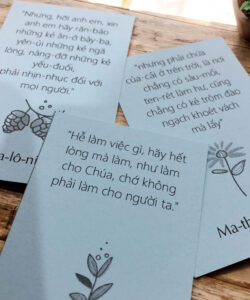 "Nhưng, hỡi anh em, xin
anh em hãy răn-bảo
những kẻ ăn-ở bậy-bạ,
yên-ủi những kẻ ngã
lòng, nâng-đỡ những kẻ
yếu-đuối,
phải nhịn-nhục đối với
mọi người."
a-lô-ni
"nhưng phải chứa
của-cải ở trên trời, là nơi
chẳng có sâu-mối,
ten-rét làm hư, cũng
chẳng có kẻ trộm đào
ngạch khoét vách
mà lấy"
Ma-th
"Hễ làm việc gì, hãy hết
lòng mà làm, như làm
cho Chúa, chớ không
phải làm cho người ta."